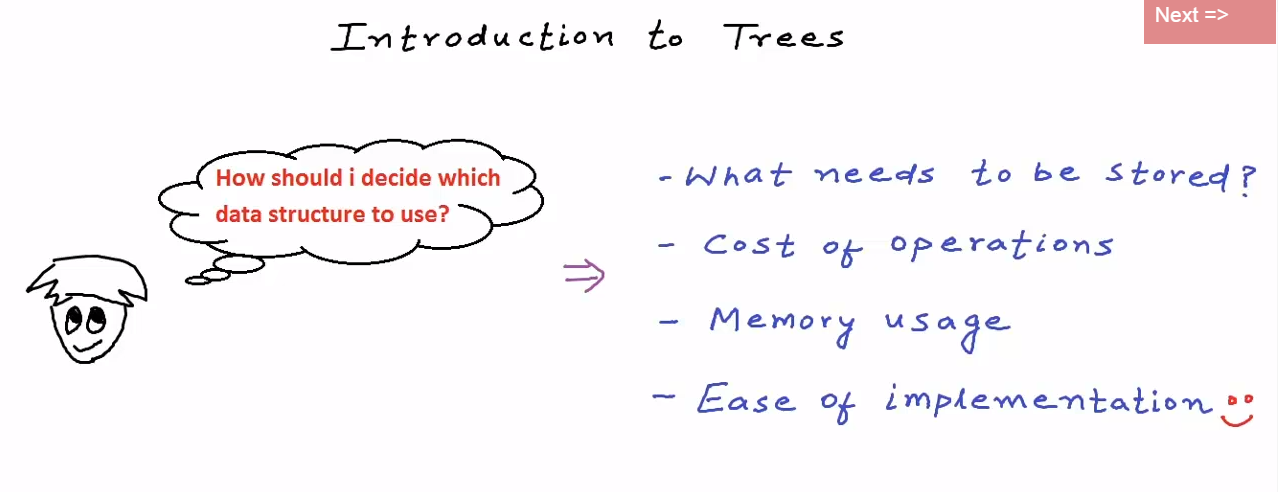 Introduction to Trees
Next =>
How should i decide which
data structure to use?
- What needs to be stored?
- Cost of operations
- Memory usage
- Ease of implementation